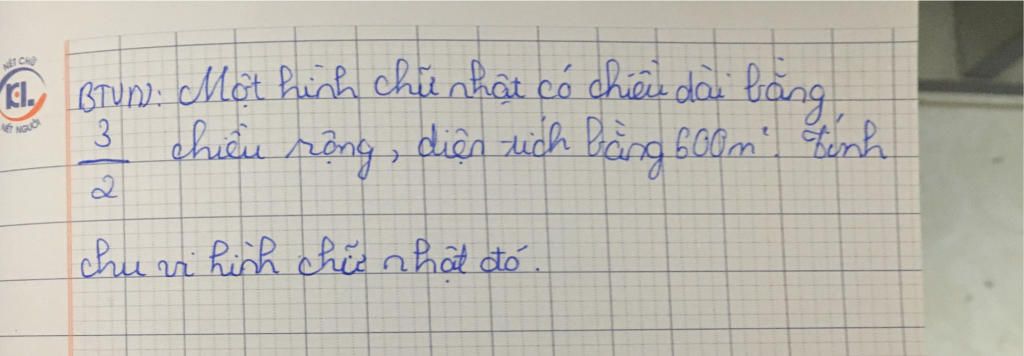 NÉT CHỮ
KL
NÉT NGƯỜI
BTVN: Một hình chữ nhật có chiều dài bằng
3/2 chiều rộng, diện tích bằng 600m². Tính
chu vi hình chữ nhật đó.